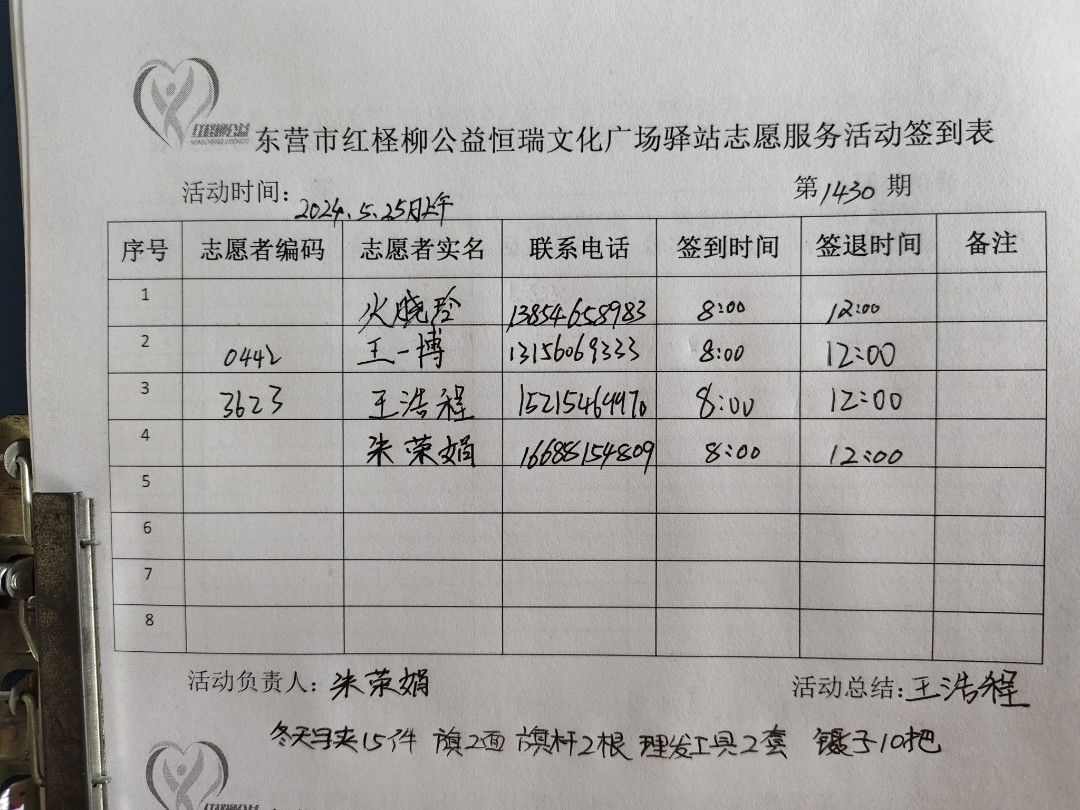 红柽柳公益
东营市红柽柳公益恒瑞文化广场驿站志愿服务活动签到表
活动时间: 2024.5.25日上午 第1430期
序号 志愿者编码 志愿者实名 联系电话 签到时间 签退时间 备注
1 火晓玲 13854658983 8:00 12:00
2 0442 王一博 13156069333 8:00 12:00
3 3623 王浩程 15215464970 8:00 12:00
4 朱荣娟 16688154809 8:00 12:00
5
6
7
8
活动负责人: 朱荣娟 活动总结: 王浩程
冬天马夹15件 旗2面 旗杆2根 理发工具2套 镊子10把
红柽柳公益